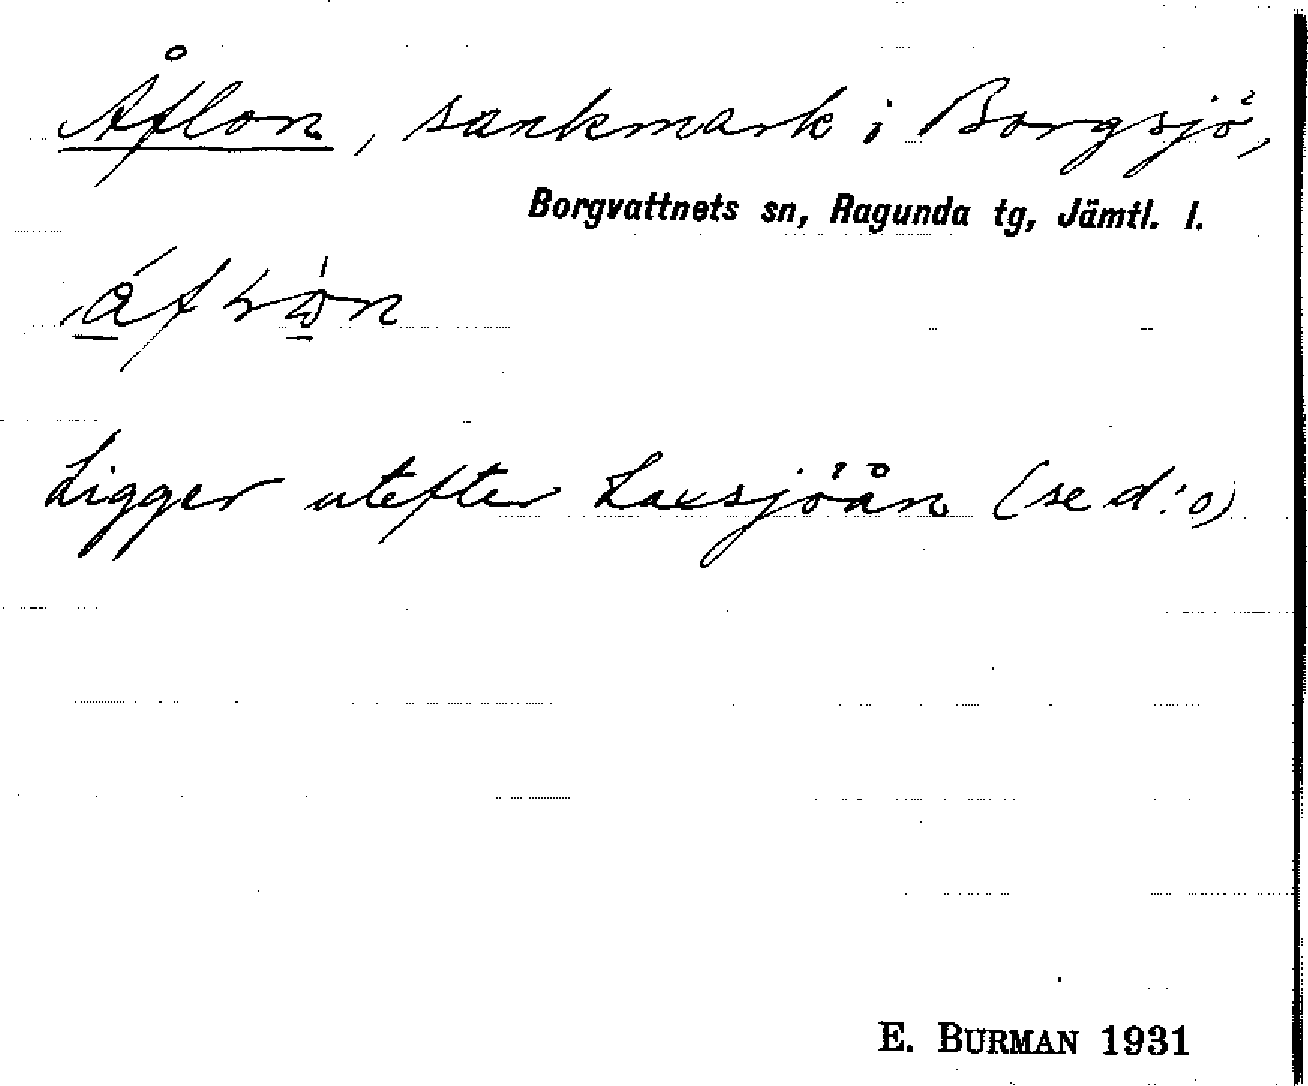 Åflon, sankmark i Borgsjö,
Borgvattnets sn, Ragunda tg, Jämtl. l.
Ligger utefter Laxsjöån (se d:o)
E. BURMAN 1931